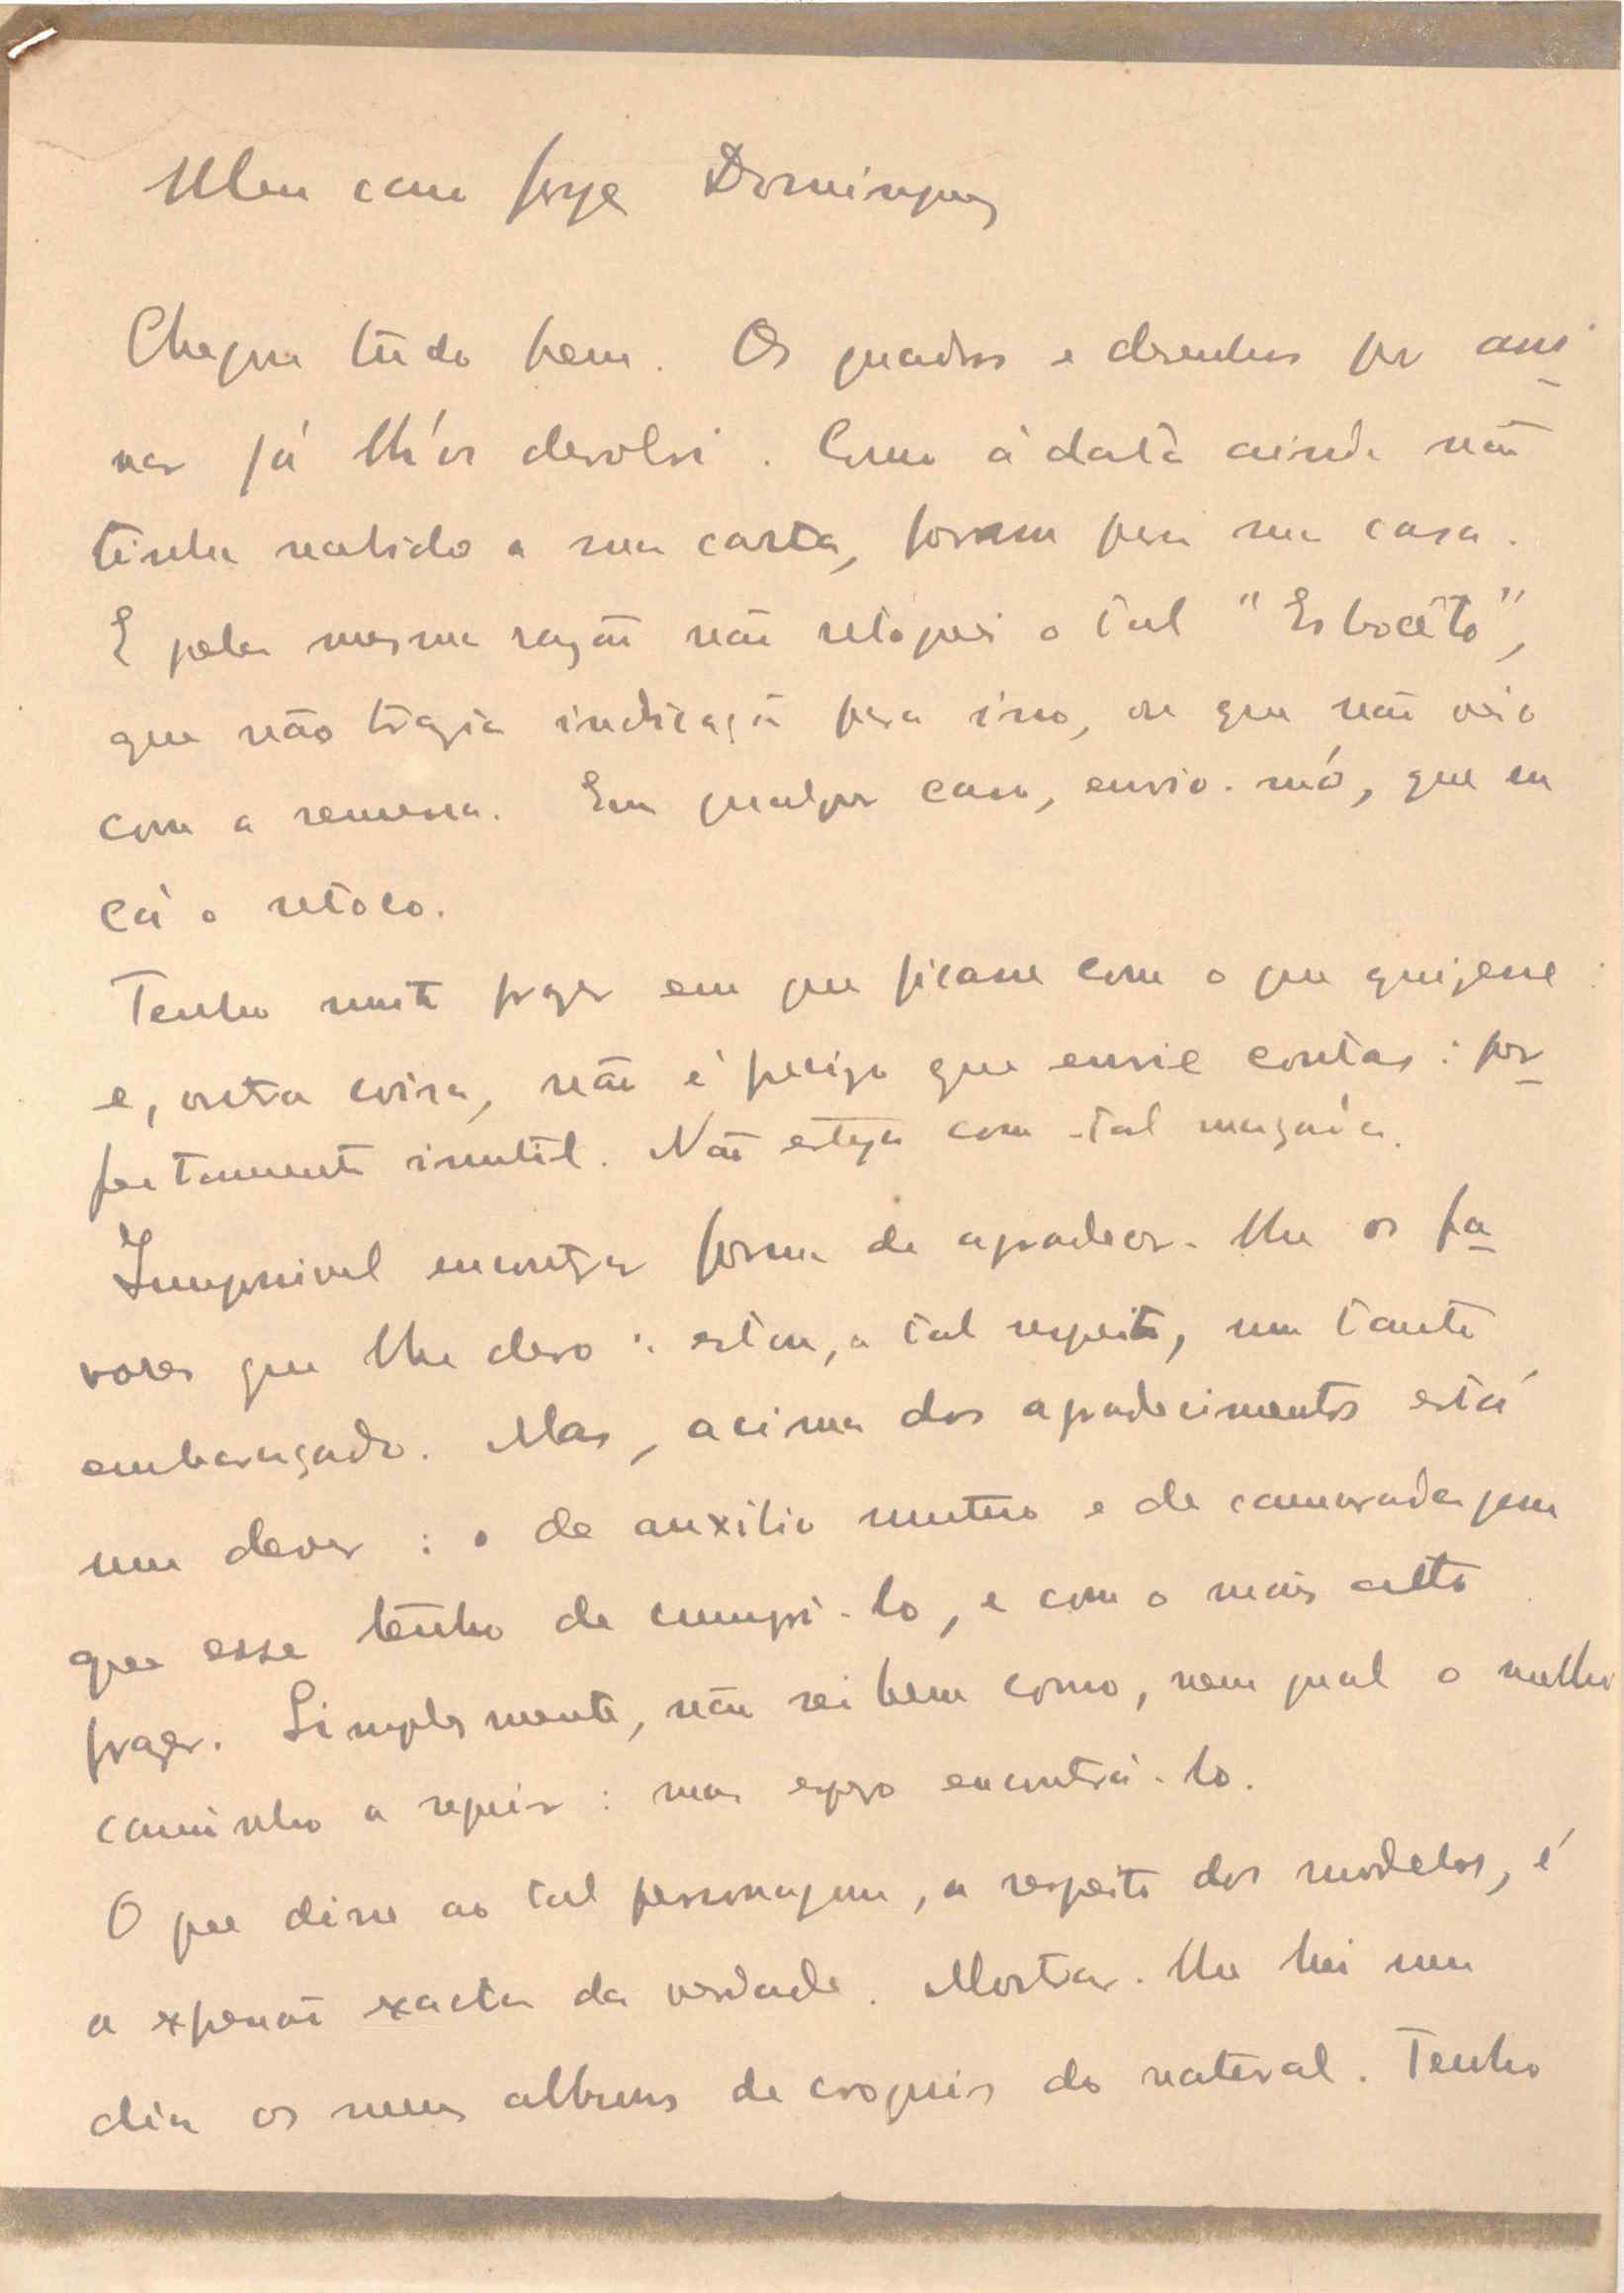 Meu caro Jorge Domingues
Chegou tudo bem. Os quadros e desenhos por assi-
nar já lh'os devolvi. Como à data ainda não
tinha recebido a sua carta, foram para sua casa.
E pela mesma razão não retoquei o tal "Esbocêto",
que não trazia indicação para isso, ou que não veio
com a remessa. Em qualquer caso, envie-mó, que eu
cá o retoco.
Tenho muito prazer em que ficasse com o que quizesse:
e, outra coisa, não é precizo que envie contas: per-
feitamente inutil. Não esteja com tal maçada.
Impossivel encontrar forma de agradecer-lhe os fa-
vores que lhe devo: estou, a tal respeito, um tanto
embaraçado. Mas, acima dos agradecimentos está
um dever: o de auxilio mutuo e de camaradagem
que esse tenho de cumpri-lo, e com o mais alto
prazer. Simplesmente, não sei bem como, nem qual o melhor
caminho a seguir: mas espero encontrá-lo.
O que disse ao tal personagem, a respeito dos modelos, é
a expressão exacta da verdade. Mostrar-lhe hei um
dia os meus albuns de croquis do natural. Tenho